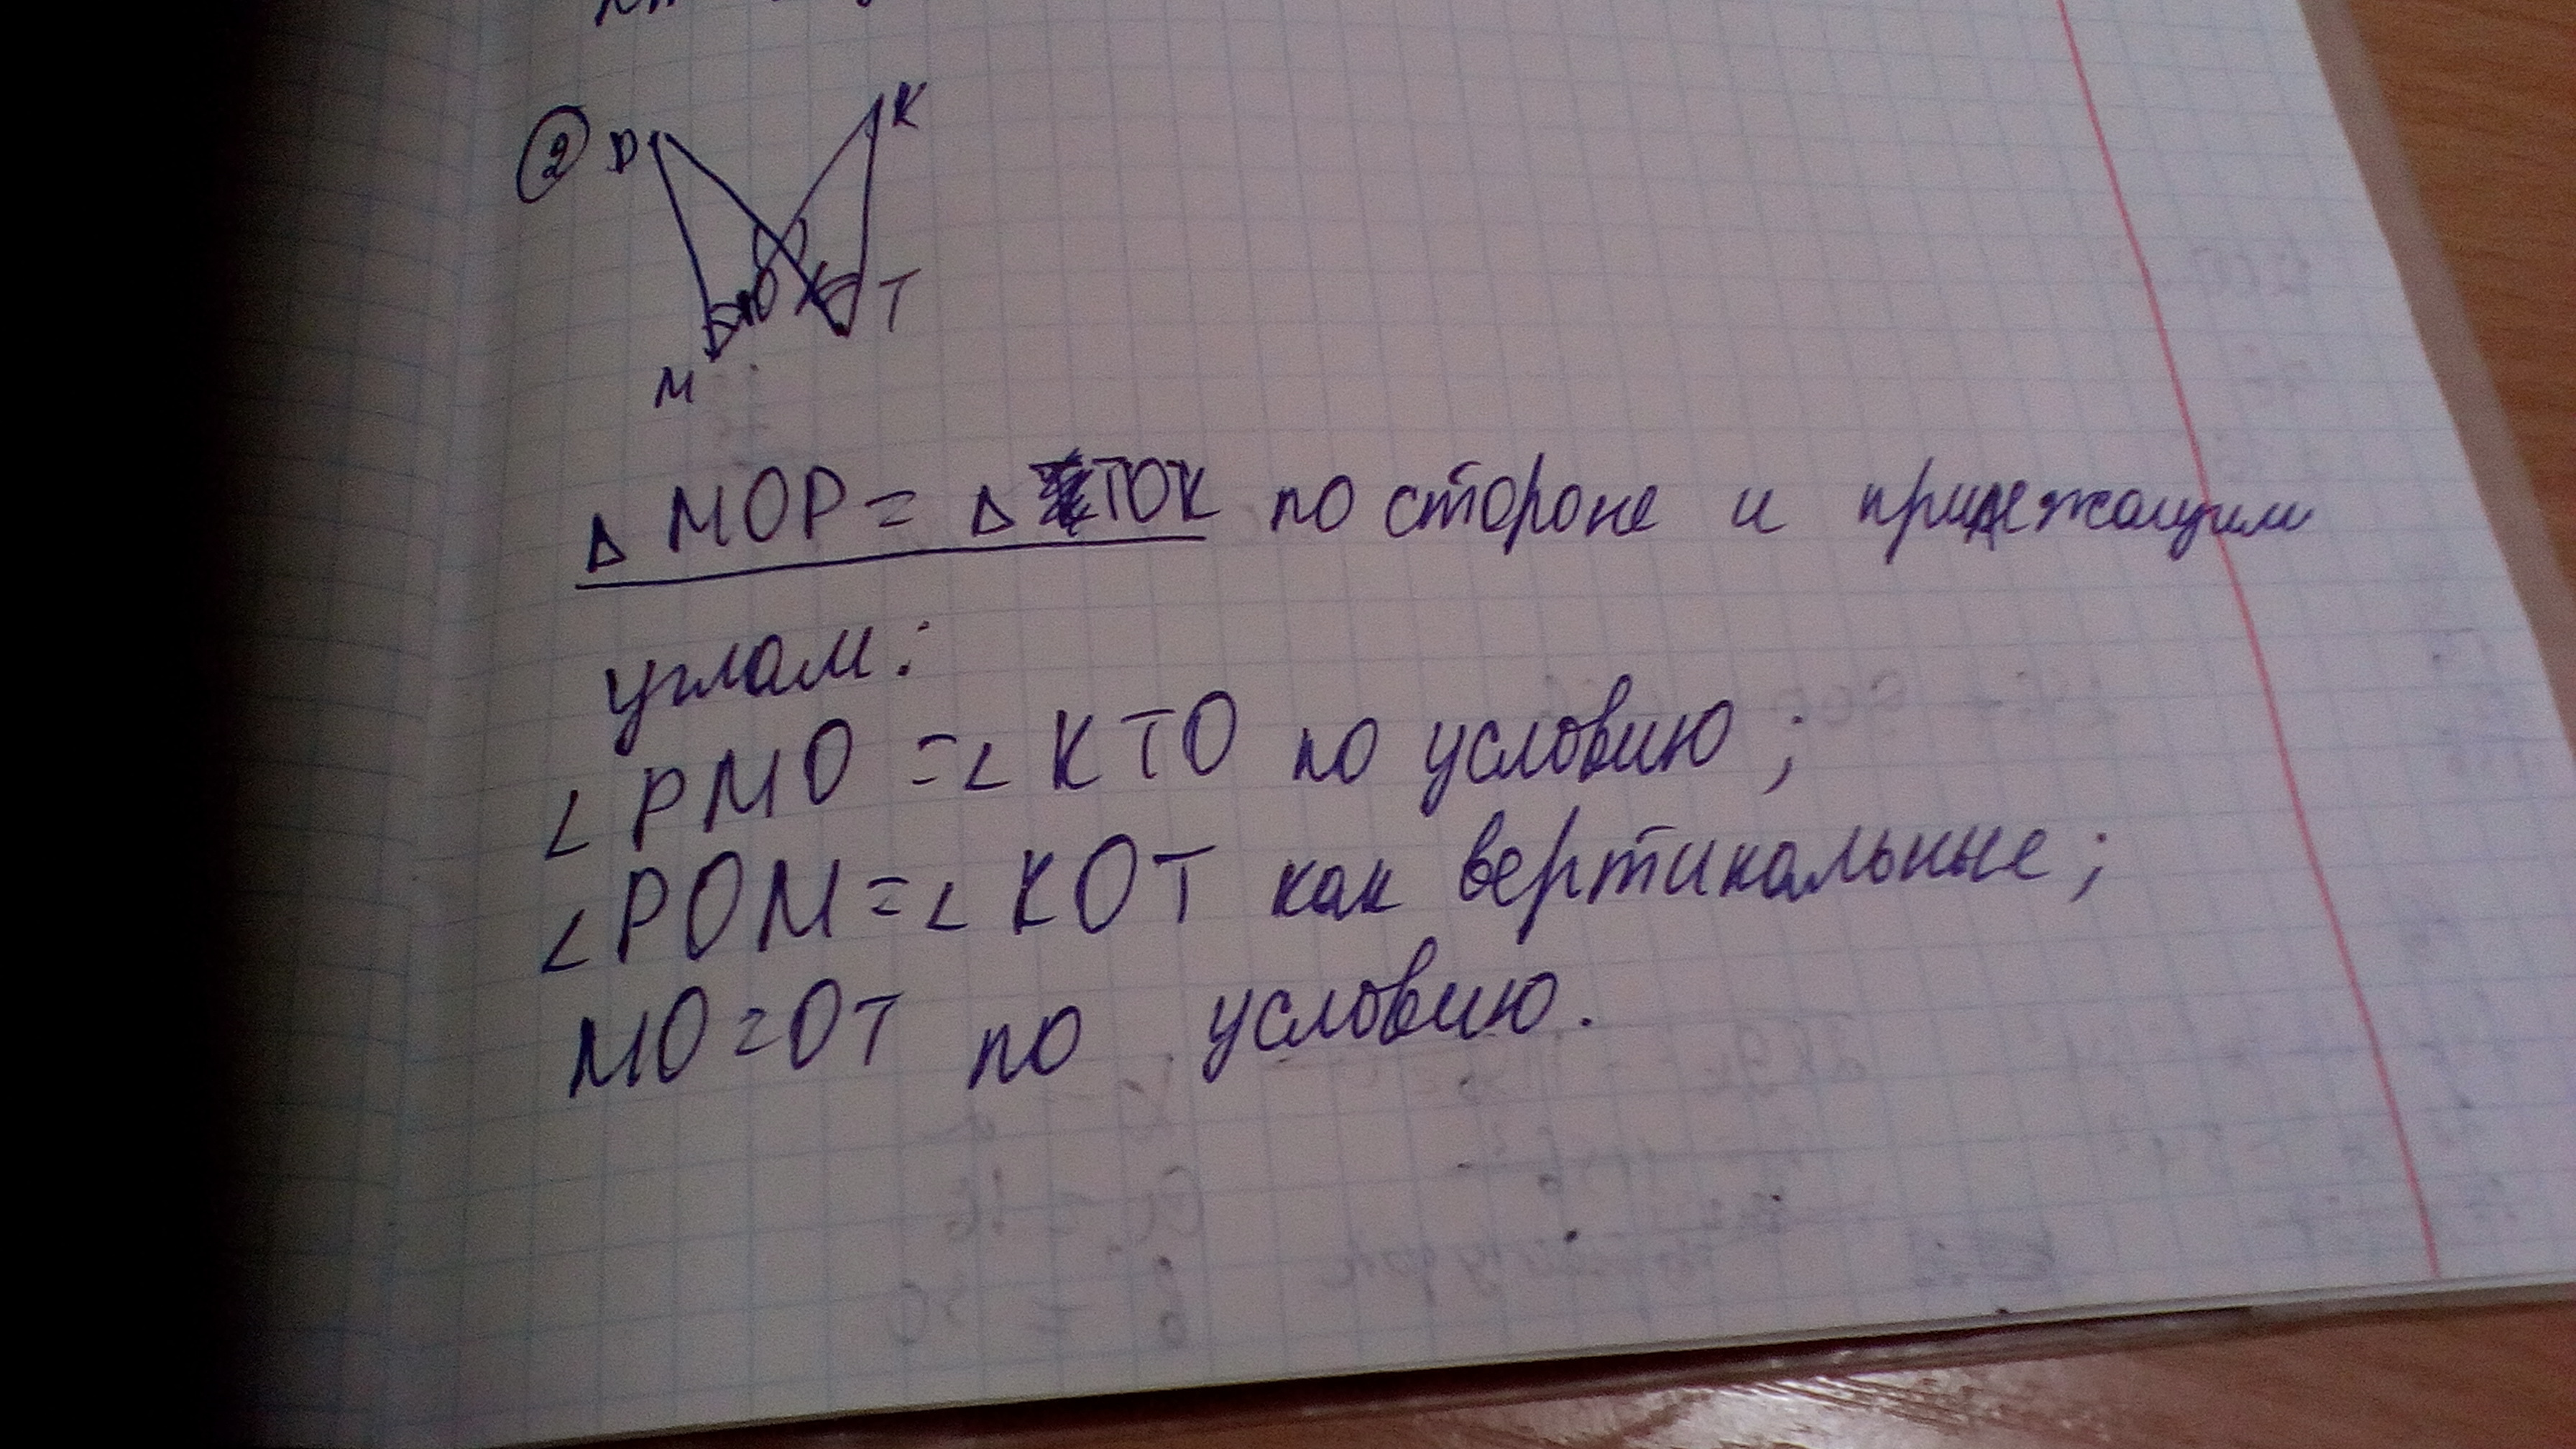 2 D K
O T
M
Δ MOP = Δ TOK по стороне и прилежащим
углам:
∠ PMO = ∠ KTO по условию;
∠ POM = ∠ KOT как вертикальные;
MO = OT по условию.